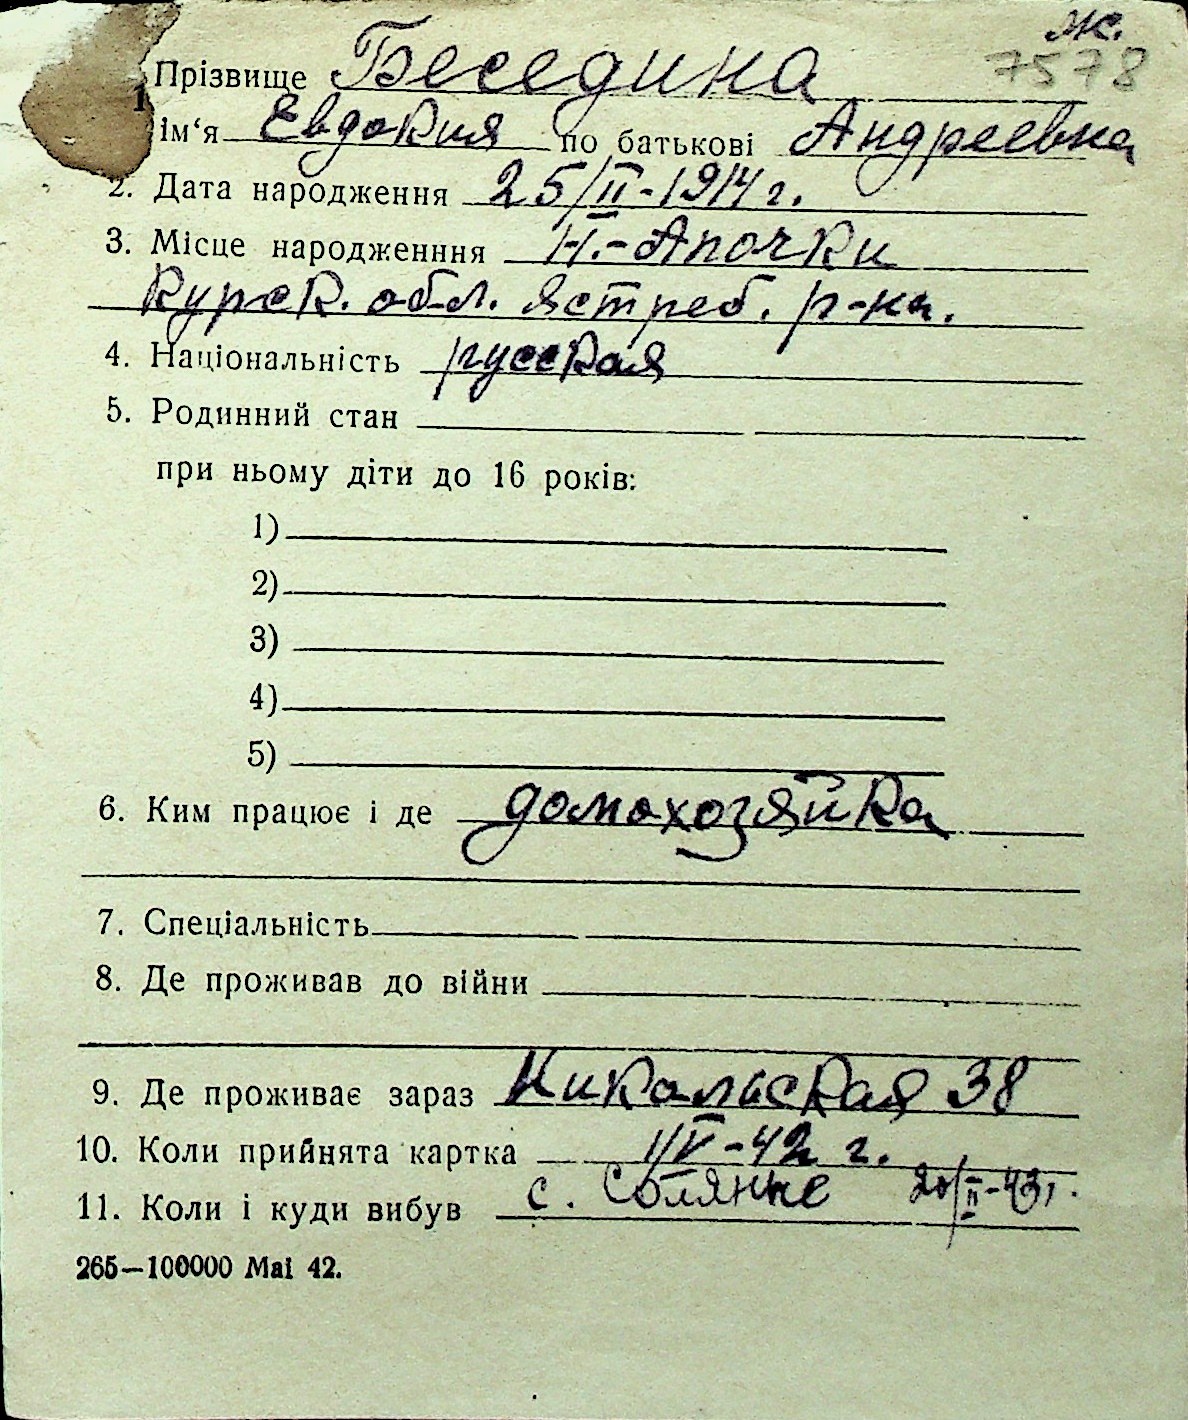 ж.
7578
1 Прізвище Беседина
Ім‘я Евдокия по батькові Андреевна
2. Дата народження 25/II-1914 г.
3. Місце народженння Н.-Апочки
Курск. обл. Ястреб. р-на.
4. Національність русская
5. Родинний стан
при ньому діти до 16 років:
1)
2)
3)
4)
5)
6. Ким працює і де домохозяйка
7. Спеціальність
8. Де проживав до війни
9. Де проживає зараз Никольская 38
10. Коли прийнята картка 1/V-42 г.
11. Коли і куди вибув с. Соляные 20/II-43г.
265—100000 Mai 42.